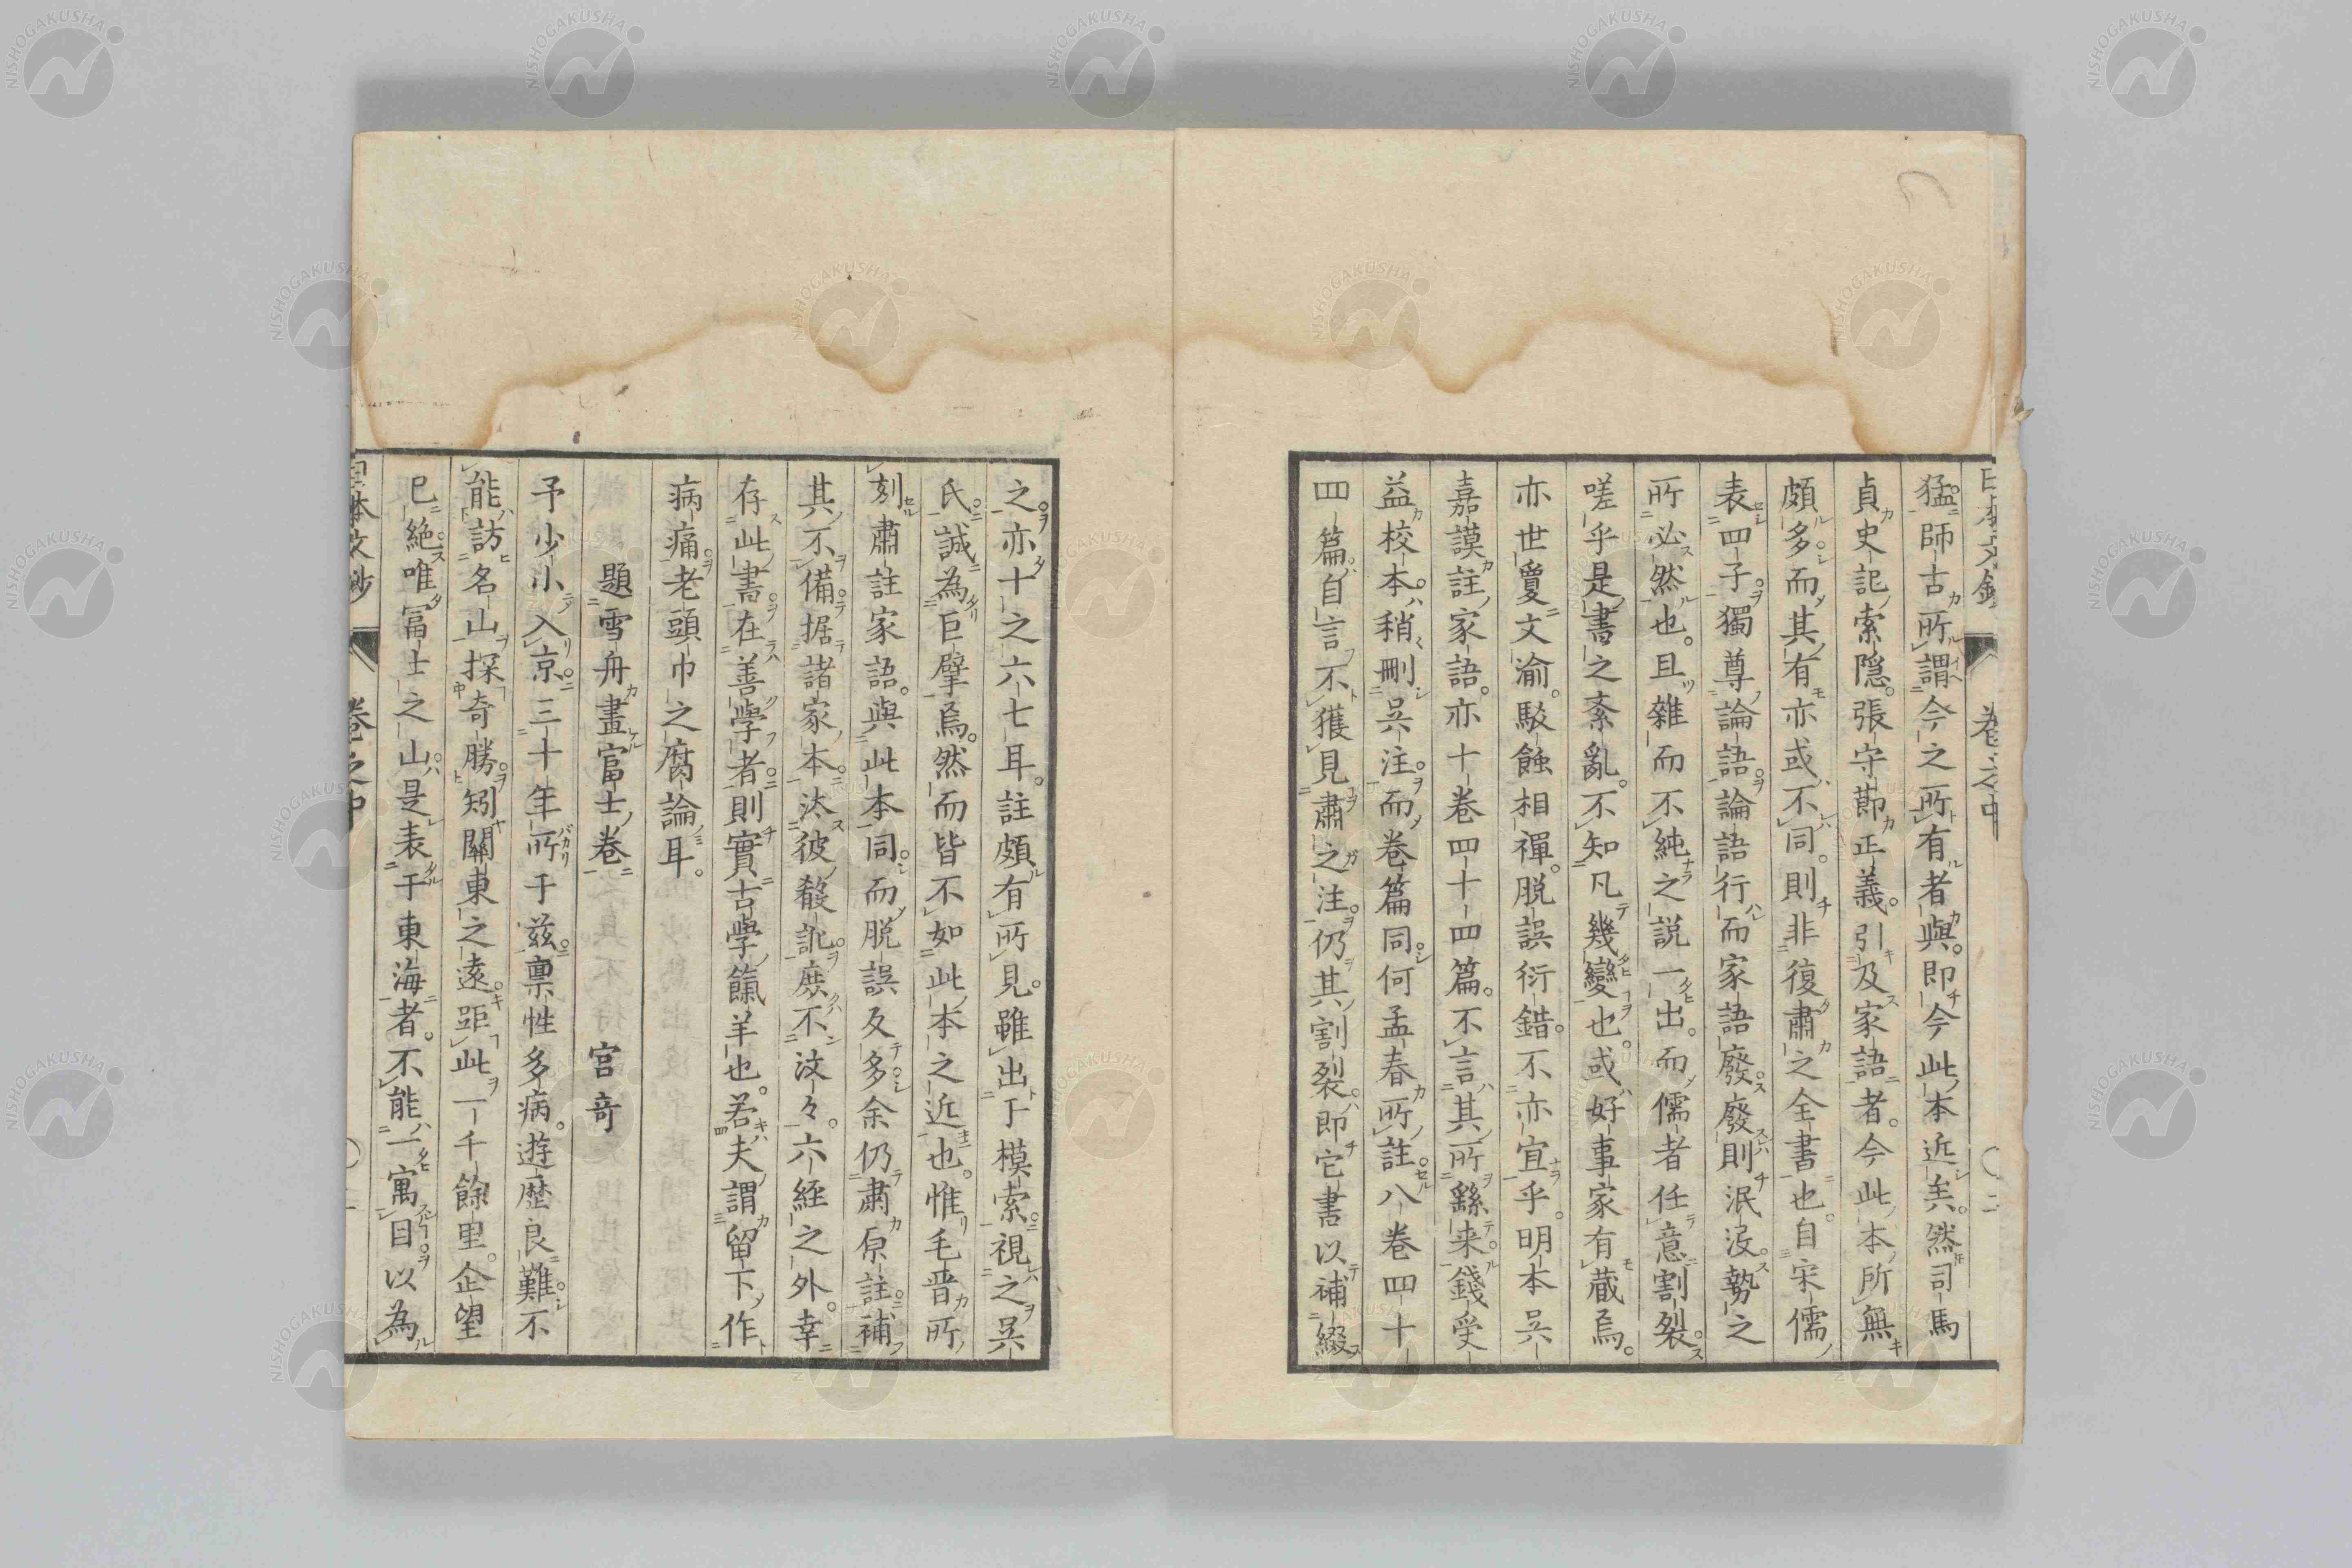 猛師古所謂今之所有者與。即今此本近矣。然司馬
貞史記索隠。張守節正義。引及家語者。今此本所無
頗多而其有亦或不同。則非復肅之全書也。自宋儒
表四子獨尊論語。論語行而家語廢。廢則泯没勢之
所必然也。且雜而不純之説一出。而儒者任意割裂。
嗟乎是書之紊亂。不知凡幾變也。或好事家有蔵焉。
亦世夐文渝。駁蝕相禪。脱誤衍錯。不亦宜乎。明本呉
嘉謨註家語。亦十巻四十四篇。不言其所繇来。錢受
益校本。稍刪呉注。而巻篇同。何孟春所註。八巻四十
四篇。自言不獲見肅之注。仍其割裂。即它書以補綴
之。亦十之六七耳。註頗有所見。雖出于模索。視之呉
氏誠為巨擘焉。然而皆不如此本之近也。惟毛晋所
刻肅註家語。與此本同。而脱誤及多。余仍肅原註。補
其不備。据諸家本。汰彼殽訛。庶不汶々。六経之外。幸
存此書。在善學者。則實古學餼羊也。若夫謂留下作
病痛。老頭巾之腐論耳。
題雪舟畫富士巻　宮奇
予少小入京。三十年所于茲。禀性多病。遊歴良難。不
能訪名山探奇勝。矧關東之遠。距此一千餘里。企望
已絶。唯冨士之山。是表于東海者。不能一寓目。以為
巻之中
巻之中